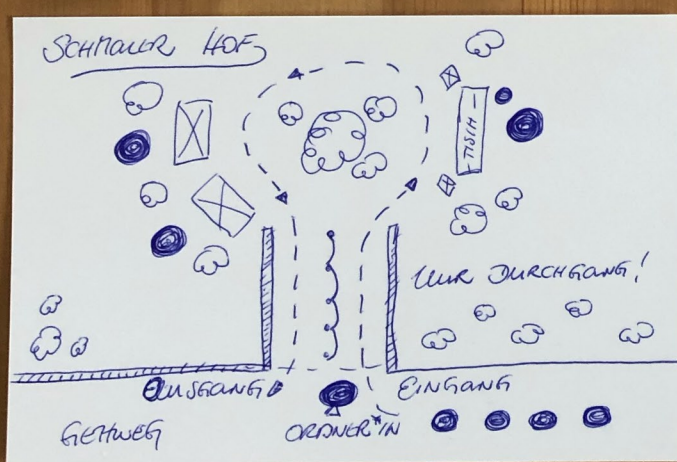 SCHMALER HOF
TISCH
NUR DURCHGANG!
AUSGANG
EINGANG
GEHWEG
ORDNER*IN